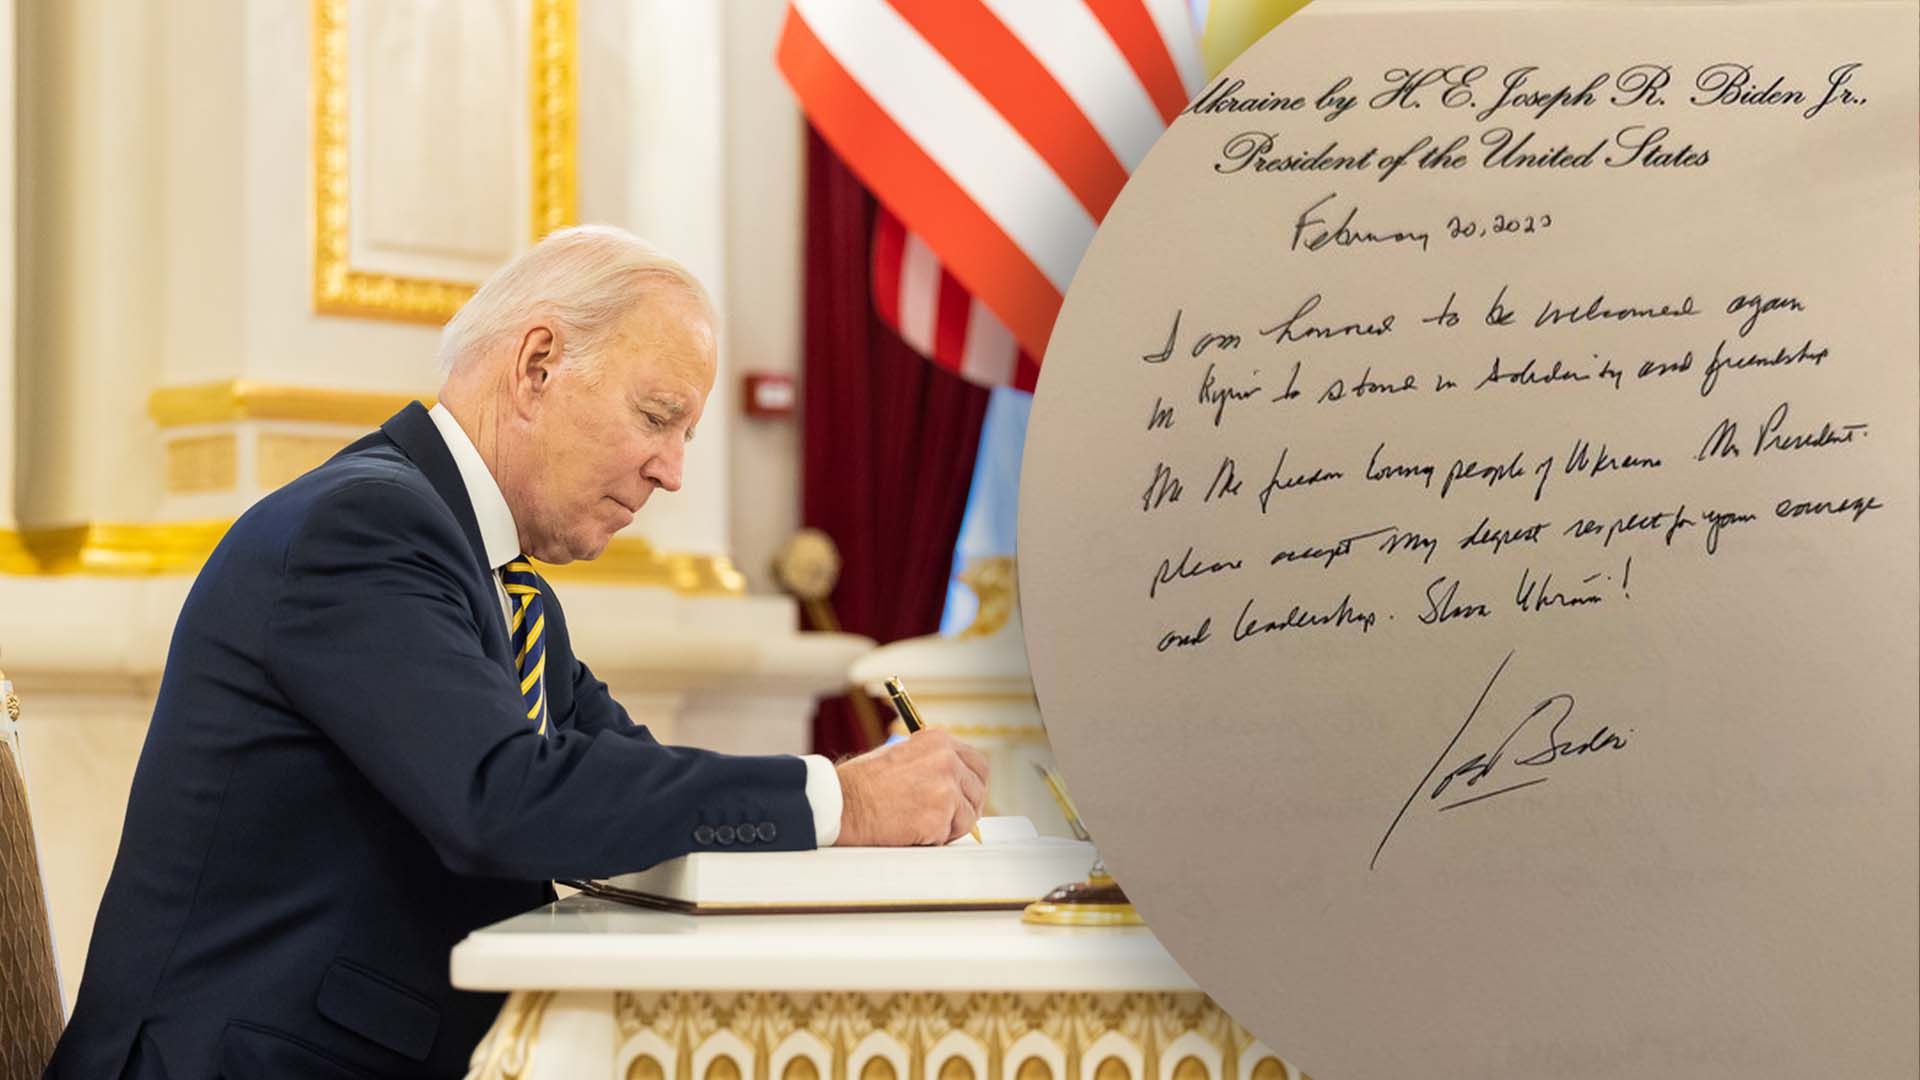 Ukraine by H. E. Joseph R. Biden Jr.,
President of the United States
February 20, 2023
I am honored to be welcomed again
in Kyiv to stand in solidarity and friendship
with the freedom loving people of Ukraine. Mr. President.
please accept my deepest respect for your courage
and leadership. Slava Ukraini!
Joe Biden